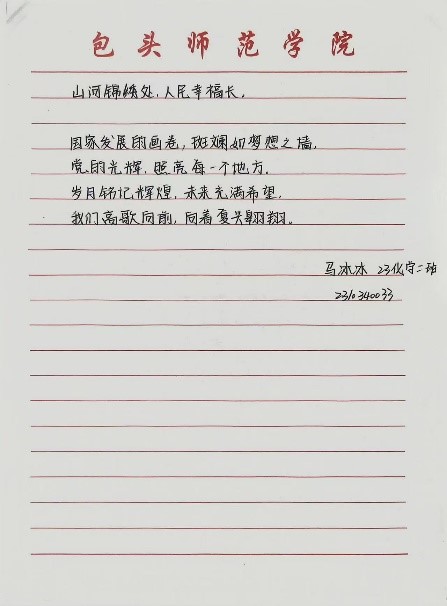 包头师范学院
山河锦绣处，人民幸福长。
国家发展的画卷，斑斓如梦想之墙，
党的光辉，照亮每一个地方。
岁月铭记辉煌，未来充满希望，
我们高歌向前，向着复兴翱翔。
马冰冰 23化学二班
2310340033